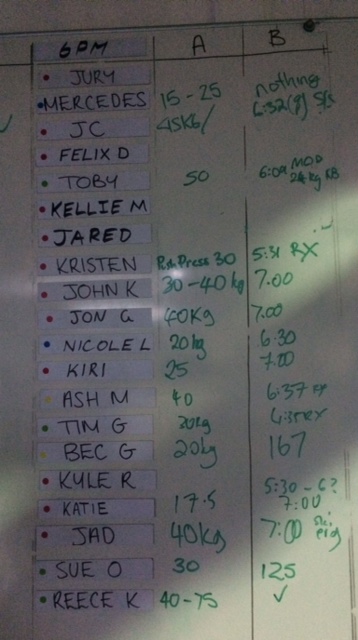 6PM A B
JURY nothing
MERCEDES 15-25 6:32(8) S/S
JC 45KG/
FELIX D
TOBY 50 6:09 MOD 24kg KB
KELLIE M
JARED
KRISTEN Push Press 30 5:31 RX
JOHN K 30-40 kg 7.00
JON G 40Kg 7.00
NICOLE L 20kg 6.30
KIRI 25 7.00
ASH M 40 6:37
TIM G 30kg 6:35 RX
BEC G 20kg 167
KYLE R 5:30-6?
KATIE 17.5 7:00
JAD 40kg 7:00 Ski erg
SUE O 30 125
REECE K 40-75 ✓